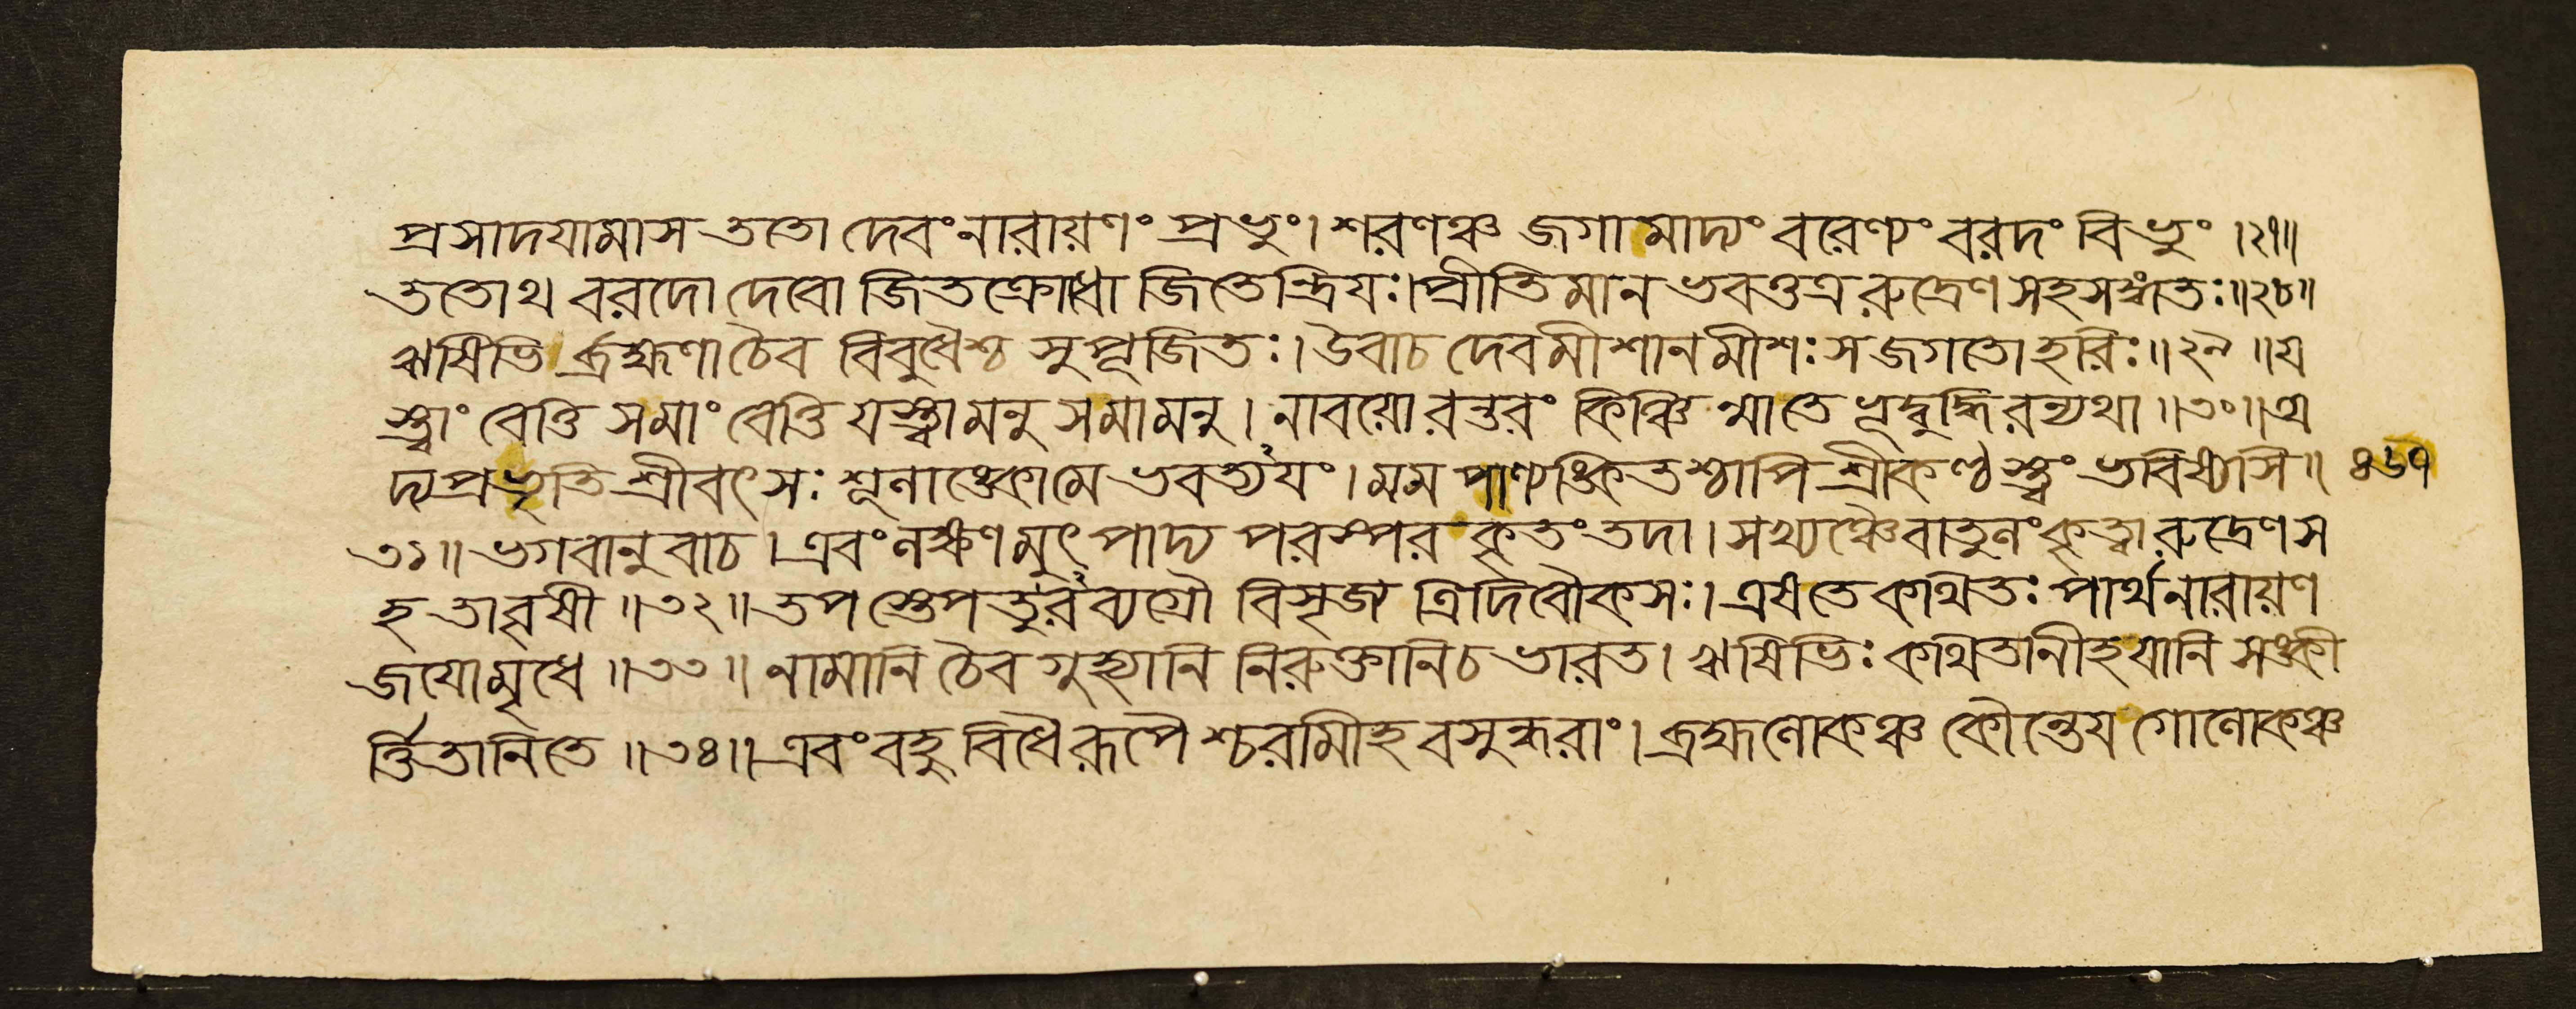 প্রসাদযামাস ততো দেবং নারায়ণং প্রভুং। শরণঞ্চ জগামাদ্যং বরেণ্যং বরদং বিভুং ।২৭॥
ততোথ বরদো দেবো জিতক্রোধো জিতেন্দ্রিযঃ। প্রীতিমানভবত্তত্র রুদ্রেণ সহ সঙ্গতঃ॥২৮॥
ঋষিভির্ব্রহ্মণা চৈব বিবুধৈশ্চ সুপূজিতঃ। উবাচ দেবমীশানমীশঃ স জগতো হরিঃ॥২৯॥ য
স্ত্বাং বেত্তি স মাং বেত্তি যস্ত্বামনু স মামনু। নাবয়োরন্তরং কিঞ্চিন্মাতে ভূদ্বুদ্ধিরন্যথা॥৩০॥ অ
দ্যপ্রভৃতি শ্রীবৎসঃ শূলাঙ্কো মে ভবত্যযং। মম পাণ্যঙ্কিতশ্চাপি শ্রীকণ্ঠস্ত্বং ভবিষ্যসি॥ ৪৬৭
৩১॥ ভগবানুবাচ। এবং লক্ষণমুৎপাদ্য পরস্পরকৃতং তদা। সখ্যঞ্চৈবাতুলং কৃত্বা রুদ্রেণ স
হ তাবৃষী॥৩২॥ তপস্তেপতুরব্যগ্রৌ বিসৃজ্য ত্রিদিবৌকসঃ। এষ তে কথিতঃ পার্থ নারায়ণ
জযো মৃধে॥৩৩॥ নামানি চৈব গুহ্যানি নিরুক্তানি চ ভারত। ঋষিভিঃ কথিতানীহ যানি সঙ্কী
র্ত্তিতানি তে॥৩৪॥ এবং বহুবিধৈ রূপৈশ্চরমীহ বসুন্ধরাং। ব্রহ্মলোকঞ্চ কৌন্তেয গোলোকঞ্চ